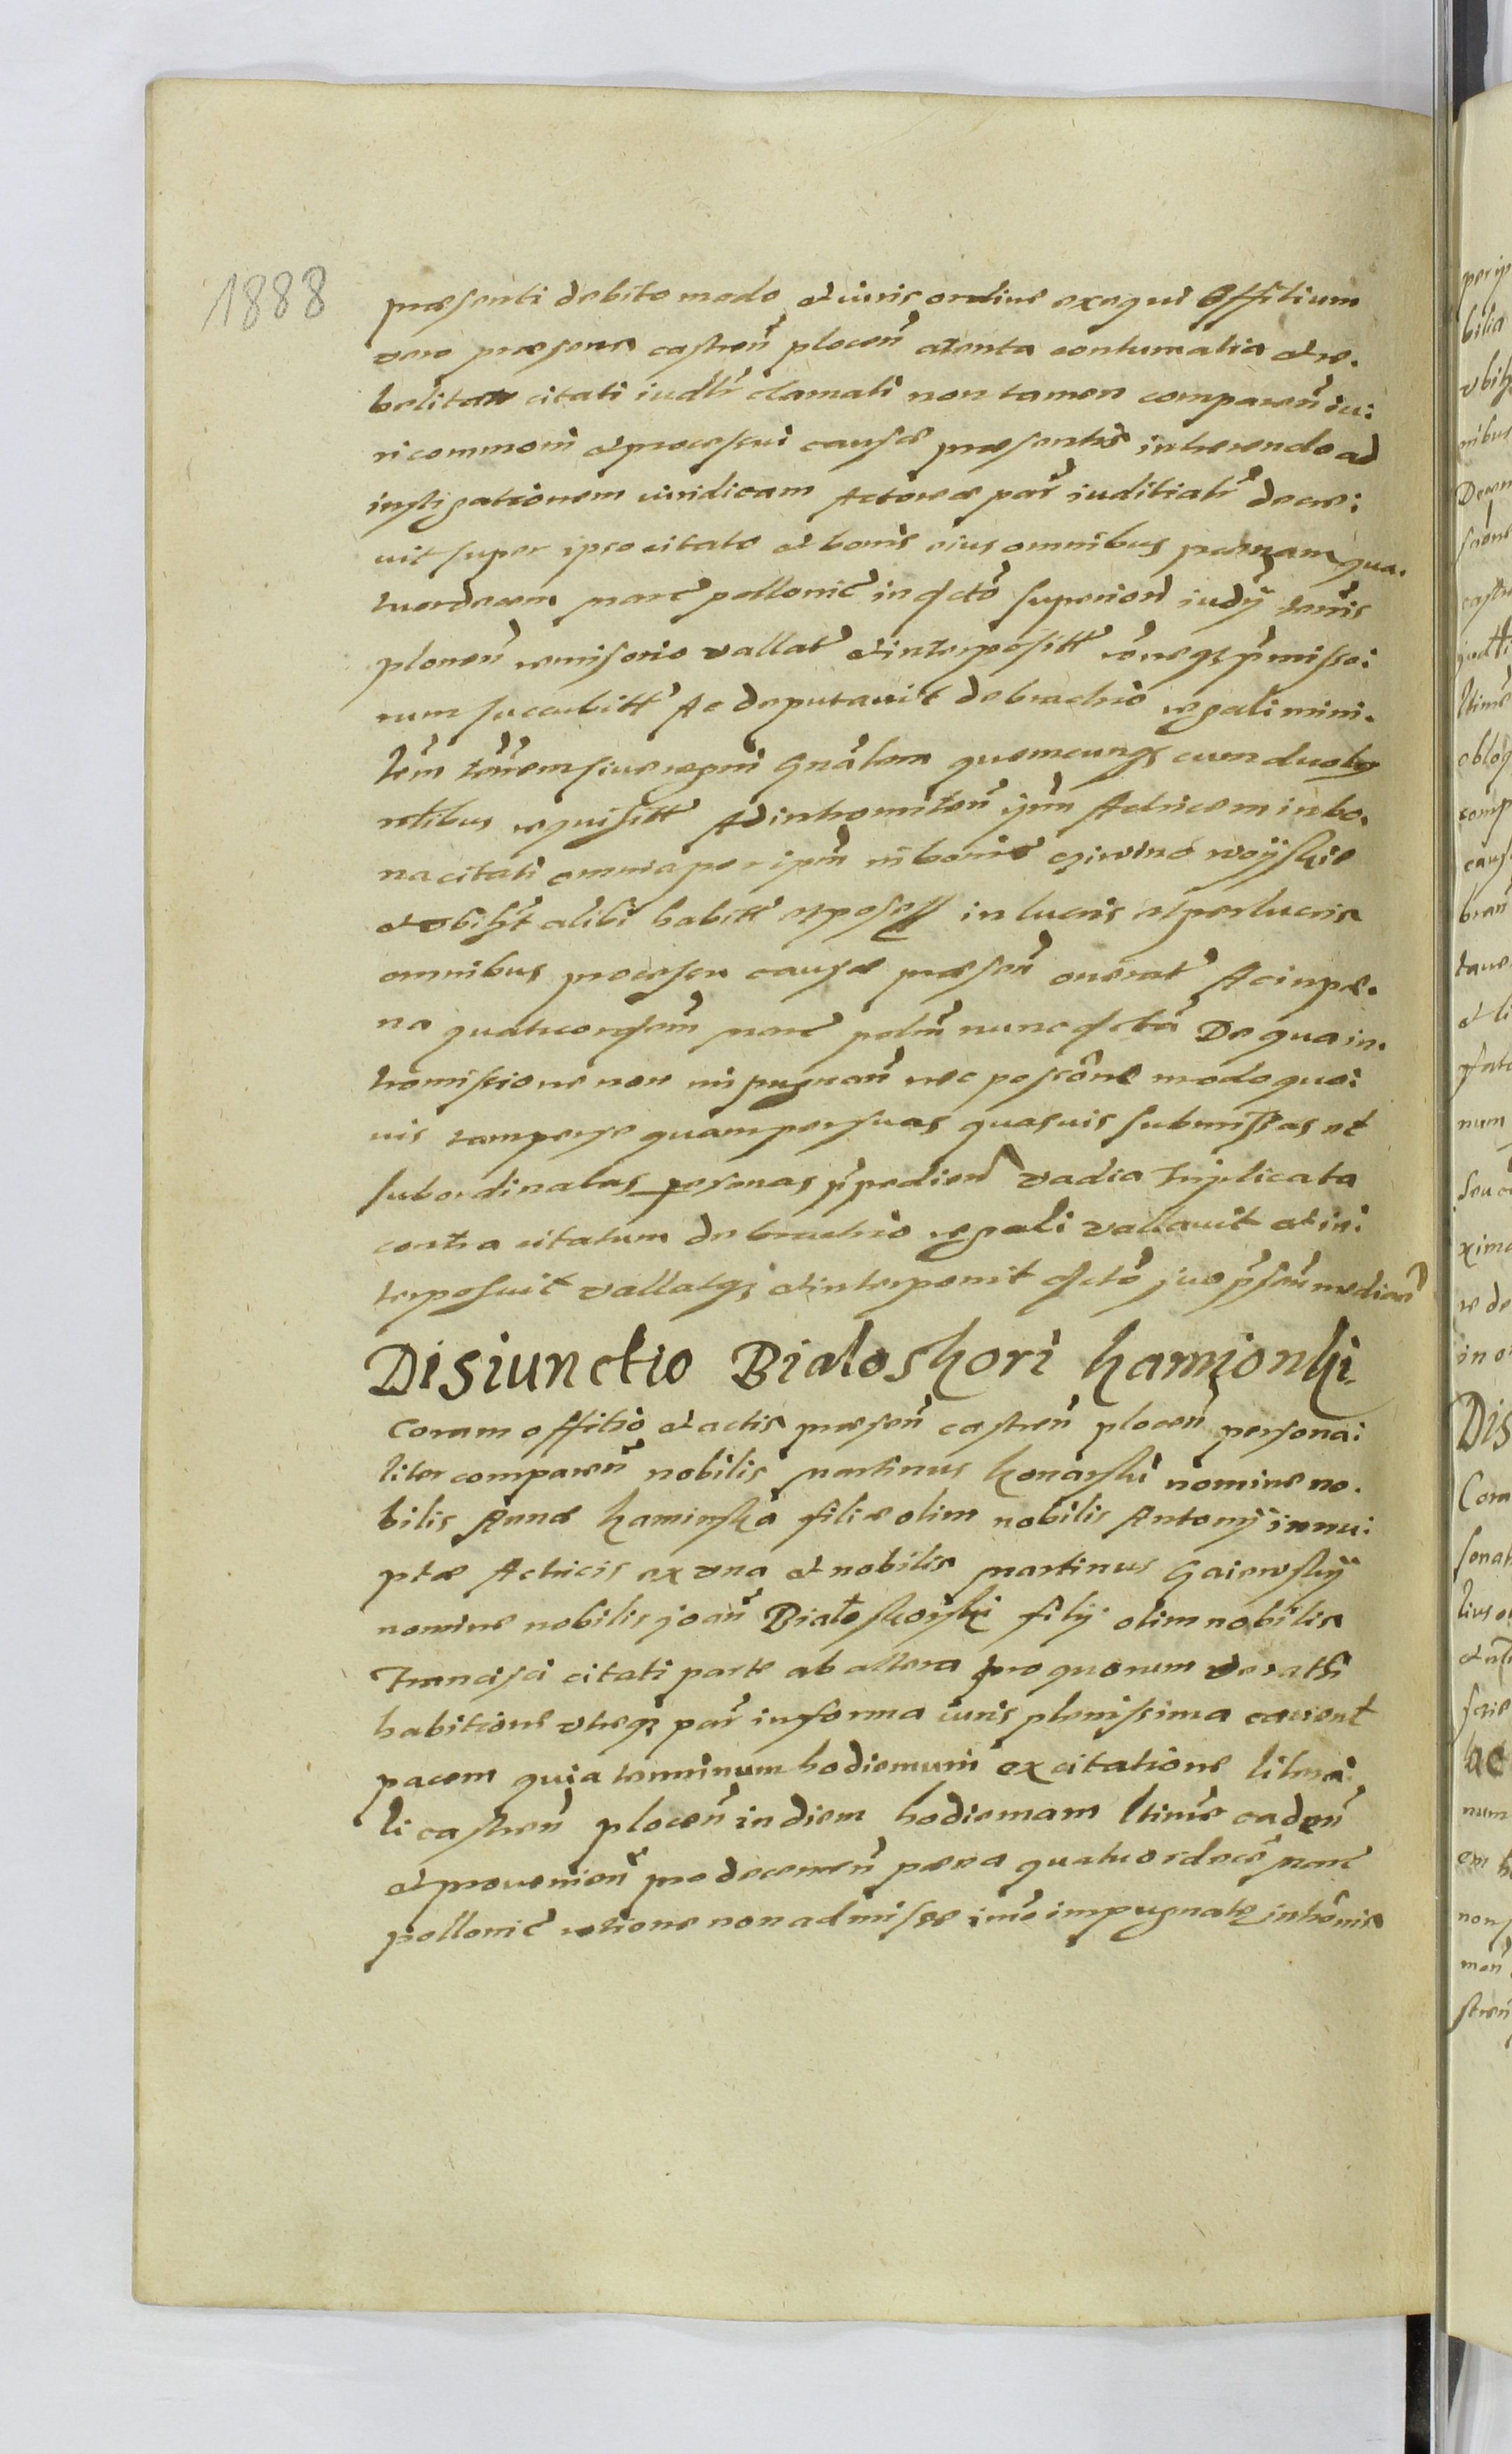 1888
præsenti debito modo et iuris ordine exequi Offitium
vero præsens castren̄ plocen̄ atenta contumatia et re.
belitate citati iudtr̄ clamati non tamen comparen̄ iu:
ri commoni et processui causæ præsentis inherendo ad
instigationem iuridicam Actoreæ par̄ iuditiatr̄ decre:
uit super ipso citato et bonis eius omnibus pœnam qua.
tuordecem marc̄ pollonic̄ in dcto superiori iudÿ terr̄is
plocen̄ remisorio vallat̄ et interposit̄t rōneqz p̄misso:
rum succubit̄t Ac deputauit de brachio regali mini.
lem̄ terr̄em siue regni Gnālem quemcunqz cum duobus
nobilibus requisit̄t Ad intromitten̄ ipm̄ Actricem in bo.
na citati omnia per ipm̄ in bonis woÿskie
et vbiꝫt alibi habit̄t et possess in lucris et perlucris
omnibus processu causæ præsen̄ onerat̄ Ac in pæ.
na quatuordem̄ marc̄ polm̄ nunc dctā De qua in.
tromissione non impugnan̄ nec possōne modo quo:
uis tam per se quam per suas quasuis submissas et
subordinatas personas p̄pedien̄ vadia triplicata
contra citatum de brachio regali vallauit et in:
terposuit vallatqz et interponit dctō iure p̄sen̄ median̄
Disiunctio Bialoskori kamionki
Coram offitio et actis præsen̄ castren̄ plocen̄ persona:
liter comparen̄ nobilis martinus konarski nomine no.
bilis Annæ kaminska filiæ olim nobilis Antonÿ innu:
ptæ Actricis ex vna et nobilis martinus Gaiewskÿ
nomine nobilis joan̄ Białoskorski filÿ olim nobilis
Francisci citati parte ab altera pro quorum de rathi
habitione vtreqz par̄ in forma iuris plenissima cauent
pacem quia terminum hodiernum ex citatione litera:
li castren̄ plocen̄ in diem hodiernam ltime caden̄
et prouenien̄ pro decernen̄ pæna quatuordecē marc̄
pollonic̄ rōtione non admisse imo impugnatę intrōmis